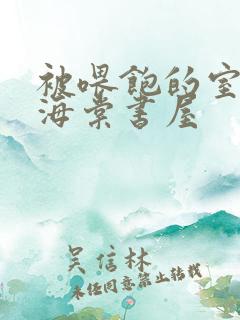 被喂饱的室
海棠书屋
吴信林
未经同意禁止转载